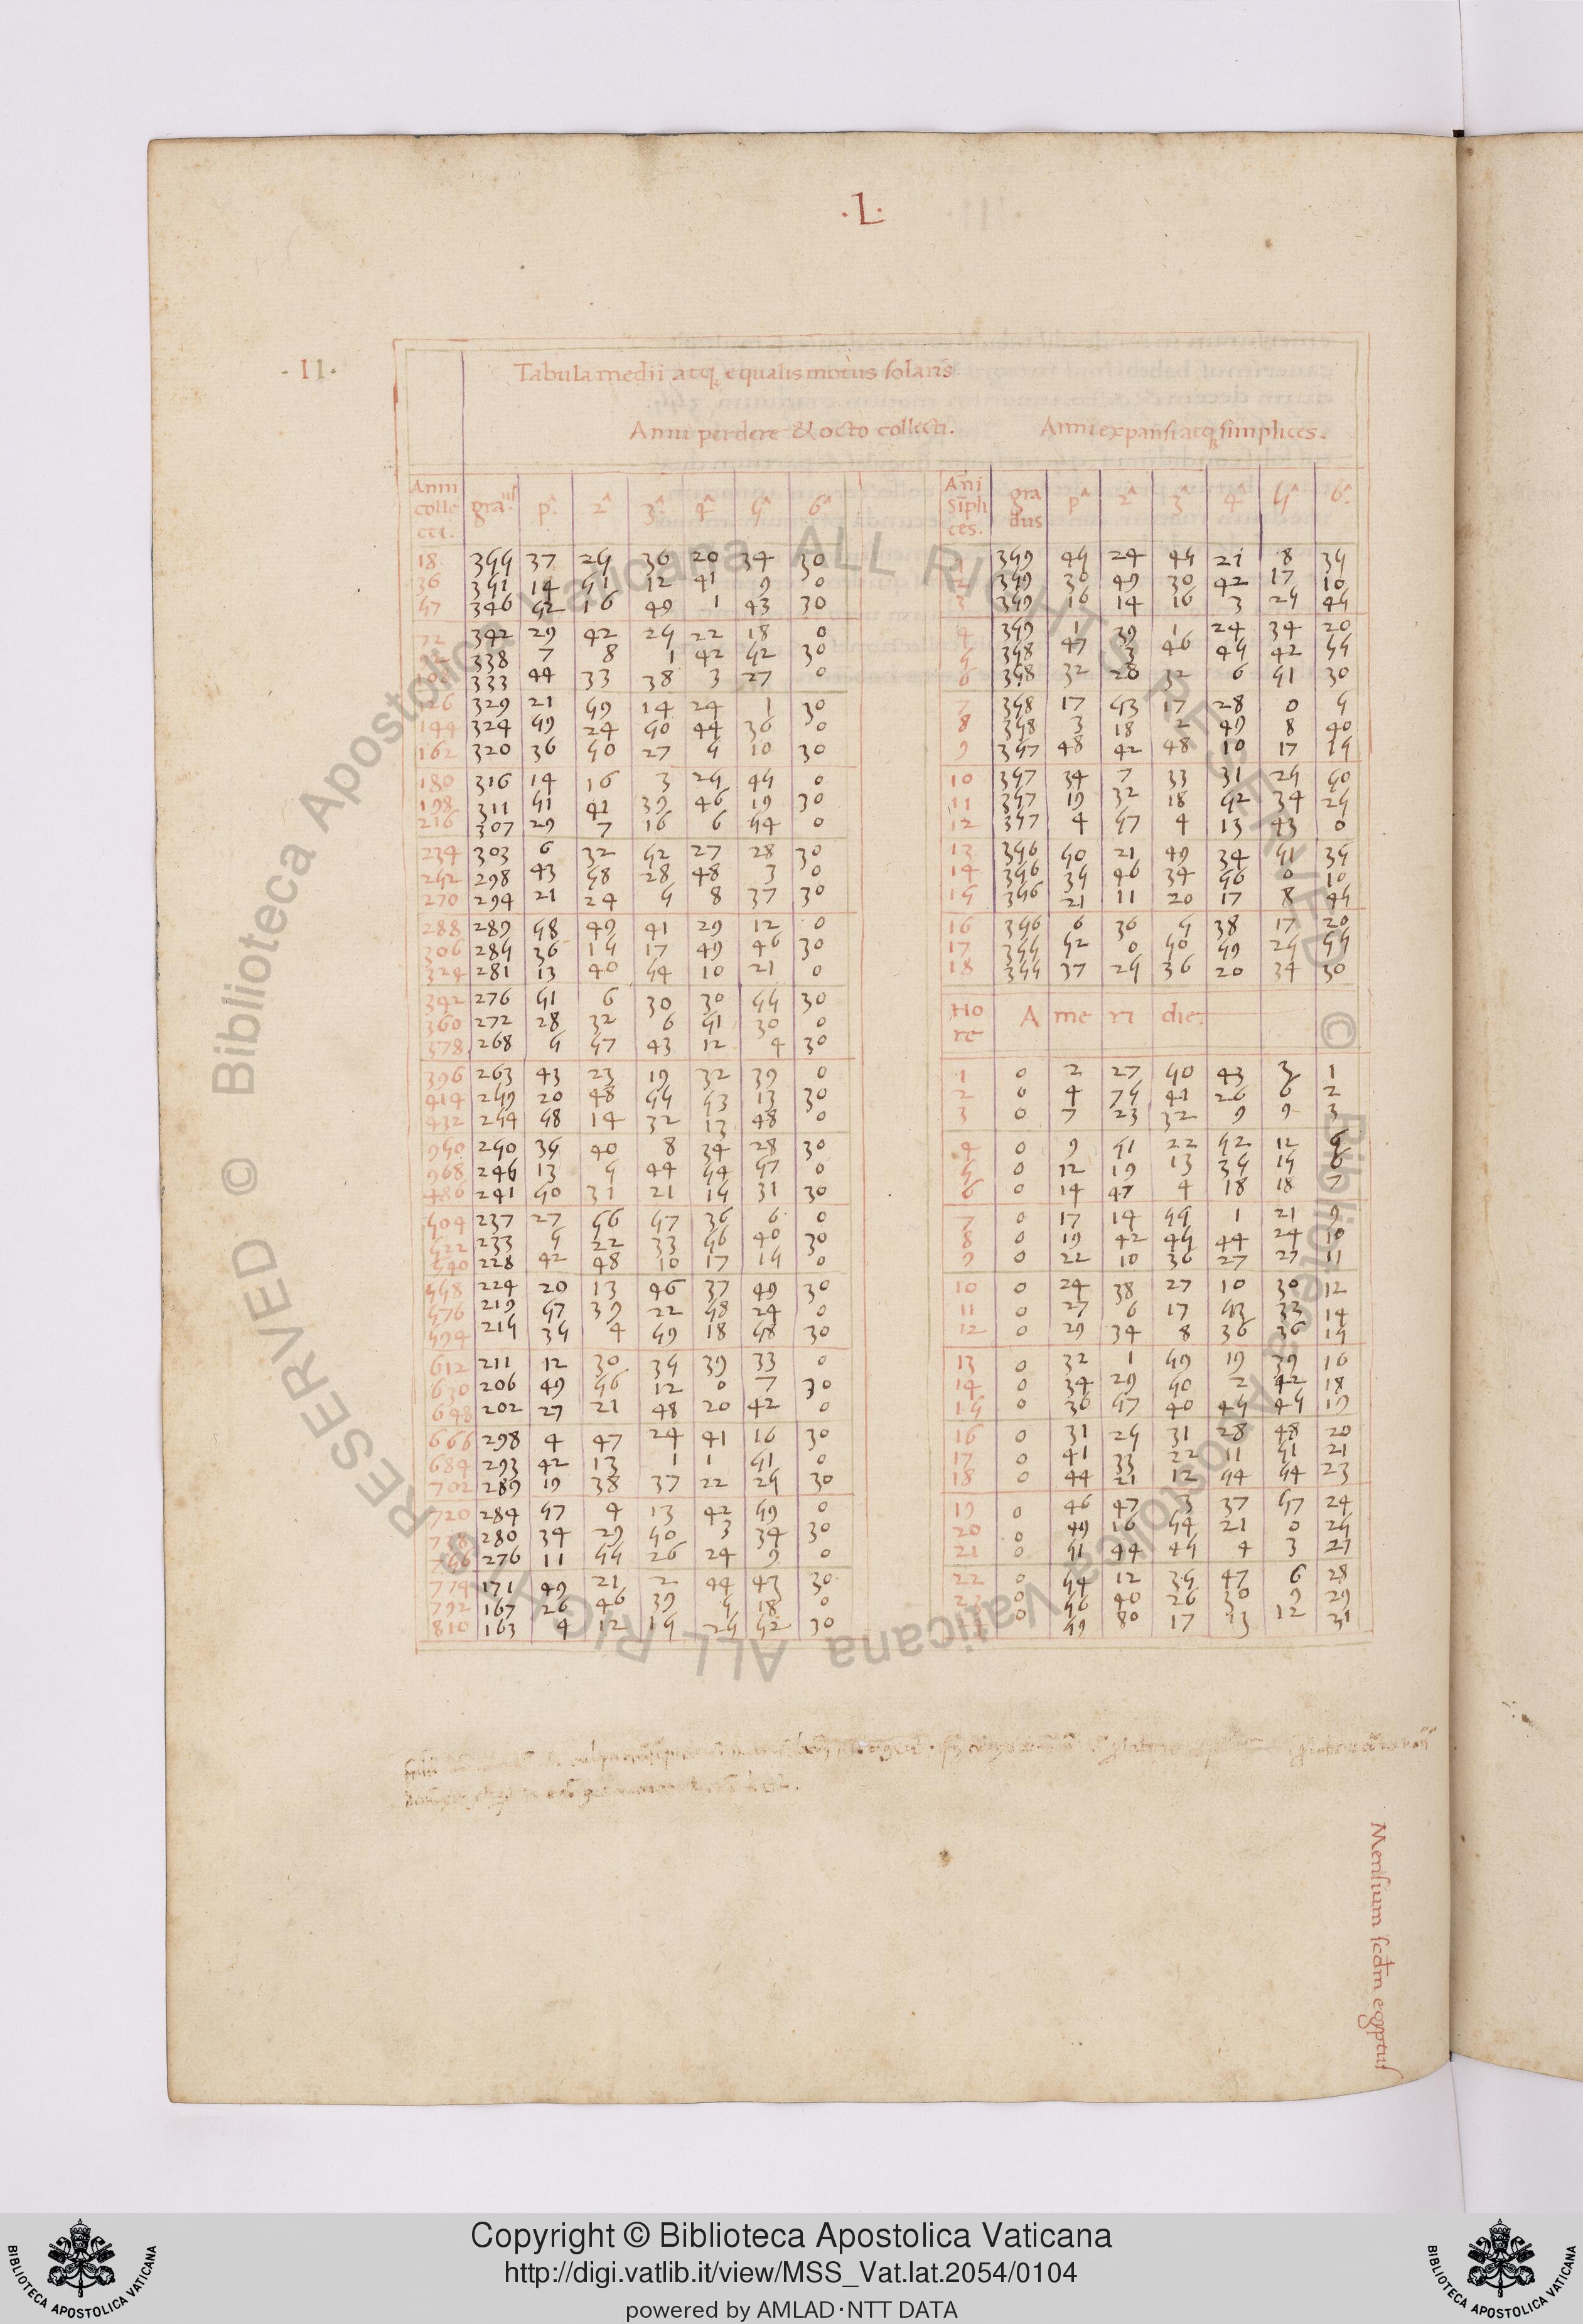 ·L·
·II·
Tabula medii atq; equalis motus solaris
Anni per dece & octo collecti.
Anni expansi atq; simplices.
Anni colle cti. gra^us p^a 2^a 3^a 4^a 5^a 6^a
18 355 37 25 36 20 34 30
36 351 14 51 12 41 9 0
57 346 52 16 49 1 43 30
72 342 29 42 25 22 18 0
338 7 8 1 42 52 30
333 44 33 38 3 27 0
126 329 21 59 14 24 1 30
144 324 59 24 50 44 36 0
162 320 36 50 27 5 10 30
180 316 14 16 3 25 45 0
198 311 51 41 39 46 19 30
216 307 29 7 16 6 54 0
234 303 6 32 52 27 28 30
252 298 43 58 28 48 3 0
270 294 21 24 5 8 37 30
288 289 58 49 41 29 12 0
306 285 36 15 17 49 46 30
324 281 13 40 54 10 21 0
342 276 51 6 30 30 55 30
360 272 28 32 6 51 30 0
378 268 5 57 43 12 4 30
396 263 43 23 19 32 39 0
414 259 20 48 55 53 13 30
432 254 58 14 32 13 48 0
950 250 35 40 8 34 28 30
968 246 13 5 44 54 57 0
486 241 50 31 21 15 31 30
504 237 27 56 57 36 6 0
522 233 5 22 33 56 40 30
540 228 42 48 10 17 15 0
558 224 20 13 46 37 49 30
576 219 57 39 22 58 24 0
594 215 35 4 59 18 58 30
612 211 12 30 35 39 33 0
630 206 49 56 12 0 7 30
648 202 27 21 48 20 42 0
666 298 4 47 24 41 16 30
684 293 42 13 1 1 51 0
702 289 19 38 37 22 25 30
720 284 57 4 13 42 59 0
738 280 34 29 50 3 34 30
756 276 11 55 26 24 9 0
774 171 49 21 2 44 43 30
792 167 26 46 39 5 18 0
810 163 4 12 15 25 52 30
Ani Siplices. gradus p^a 2^a 3^a 4^a 5^a 6^a
1 359 45 24 45 21 8 35
2 359 30 49 30 42 17 10
3 359 16 14 16 3 25 45
4 359 1 39 1 24 34 20
5 358 47 3 46 45 42 55
6 358 32 28 32 6 51 30
7 358 17 53 17 28 0 5
8 358 3 18 2 49 8 40
9 357 48 42 48 10 17 15
10 357 34 7 33 31 25 50
11 357 19 32 18 52 34 25
12 357 4 57 4 13 43 0
13 356 50 21 49 34 51 35
14 356 35 46 34 56 0 10
15 356 21 11 20 17 8 45
16 356 6 36 5 38 17 20
17 355 52 0 50 59 25 55
18 355 37 25 36 20 34 30
Hore A meri die.
1 0 2 27 50 43 3 1
2 0 4 75 41 26 6 2
3 0 7 23 32 9 9 3
4 0 9 51 22 52 12 5
5 0 12 19 13 35 15 6
6 0 14 47 4 18 18 7
7 0 17 14 55 1 21 9
8 0 19 42 45 44 24 10
9 0 22 10 36 27 27 11
10 0 24 38 27 10 30 12
11 0 27 6 17 53 33 14
12 0 29 34 8 36 36 15
13 0 32 1 59 19 39 16
14 0 34 29 50 2 42 18
15 0 36 57 40 45 45 19
16 0 31 25 31 28 48 20
17 0 41 33 22 11 51 21
18 0 44 21 12 54 54 23
19 0 46 47 3 37 57 24
20 0 49 16 54 21 0 25
21 0 51 44 45 4 3 27
22 0 54 12 35 47 6 28
23 0 56 40 26 30 9 29
0 59 80 17 13 12 31
Mensium scdm egyptus
Copyright © Biblioteca Apostolica Vaticana
http://digi.vatlib.it/view/MSS_Vat.lat.2054/0104
powered by AMLAD·NTT DATA
BIBLIOTECA APOSTOLICA VATICANA
BIBLIOTECA APOSTOLICA VATICANA
© Biblioteca Apostolica Vaticana ALL RIGHTS RESERVED
© Biblioteca Apostolica Vaticana ALL RIGHTS RESERVED